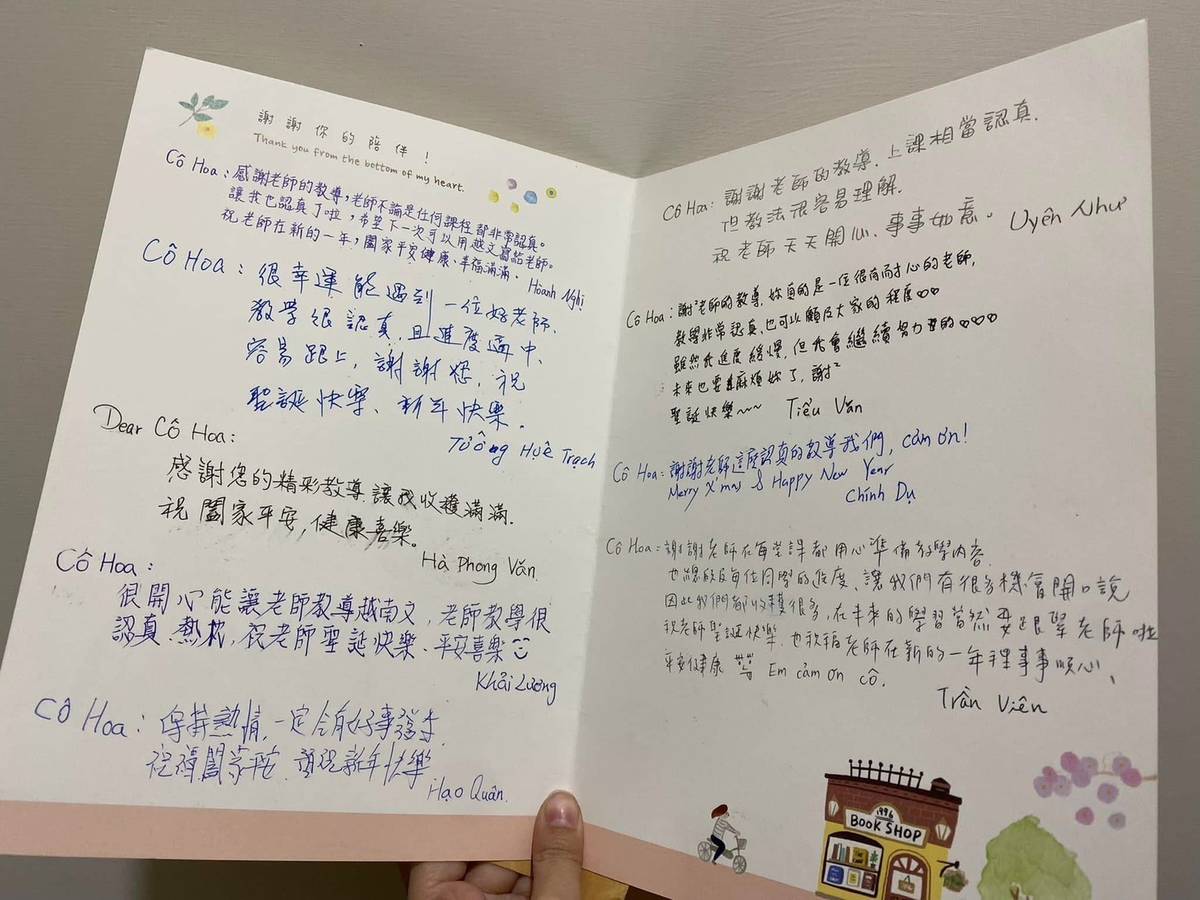 謝謝你的陪伴!
Thank you from the bottom of my heart.
Cô Hoa：感謝老師的教導，老師不論是任何課程都非常認真。
讓我也認真了啦，希望下一次可以用越文寫給老師。
祝老師在新的一年，闔家平安健康、幸福滿滿、 Hoành Nghị
Cô Hoa：很幸運能遇到一位好老師、
教學很認真、且進度適中、
容易跟上，謝謝您，祝
聖誕快樂、新年快樂。
Tưởng Huệ Trạch
Dear Cô Hoa:
感謝您的精彩教導，讓我收穫滿滿.
祝闔家平安，健康喜樂。
Hà Phong Văn.
Cô Hoa：
很開心能讓老師教導越南文，老師教學很
認真、熱忱，祝老師聖誕快樂、平安喜樂
Khải Lương
Cô Hoa：保持熱情，一定會有好事發生
祝福闔家平安 預祝新年快樂
Hạo Quân.
Cô Hoa：謝謝老師的教導、上課相當認真.
但教法很容易理解.
祝老師天天開心、事事如意。 Uyên Như
Cô Hoa：謝²老師的教導、妳真的是一位很有耐心的老師，
教學非常認真、也可以顧及大家的程度♡♡
雖然我進度緩慢，但我會繼續努力習的♡♡♡
未來也要麻煩妳了，謝²
聖誕快樂~~ Tiểu Văn
Cô Hoa：謝謝老師這麼認真的教導我們，cảm ơn!
Merry X'mas & Happy New Year
Chính Dụ
Cô Hoa：謝謝老師在每堂課都用心準備教學內容
也總顧及每位同學的進度、讓我們有很多機會開口說
因此我們都收穫很多，在未來的學習當然要跟緊老師啦
祝老師聖誕快樂、也祝福老師在新的一年裡事事順心、
平安健康 Em cảm ơn cô.
Trần Viên
1996
BOOK SHOP